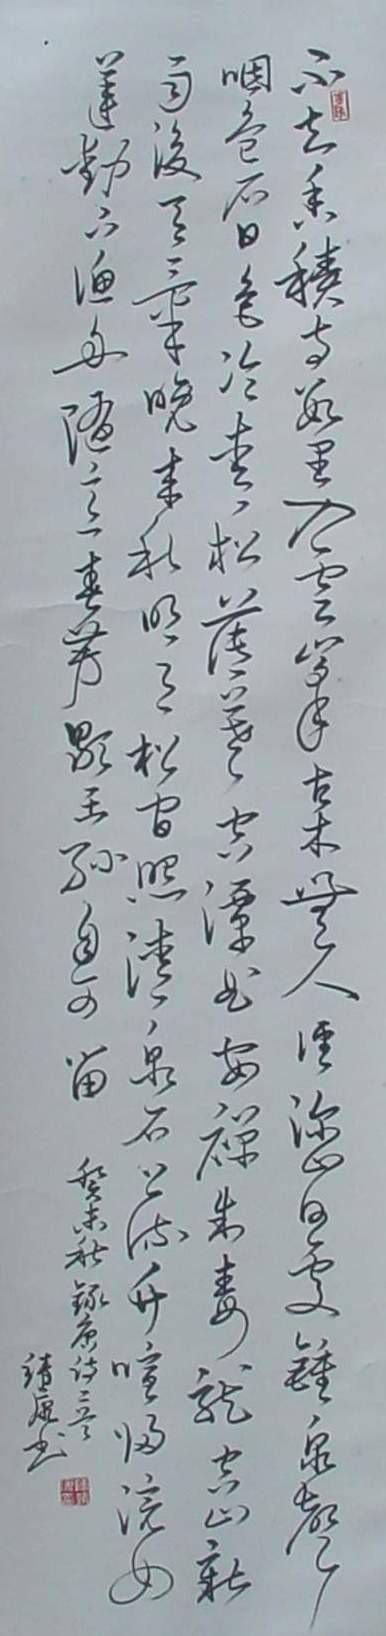 不知香積寺數里入雲峯古木無人徑深山何處鐘泉聲
咽危石日色冷青松薄暮空潭曲安禪制毒龍空山新
雨後天氣晚來秋明月松間照清泉石上流竹喧歸浣女
蓮動下漁舟隨意春芳歇王孫自可留 癸未秋錄唐詩二首
靖康書